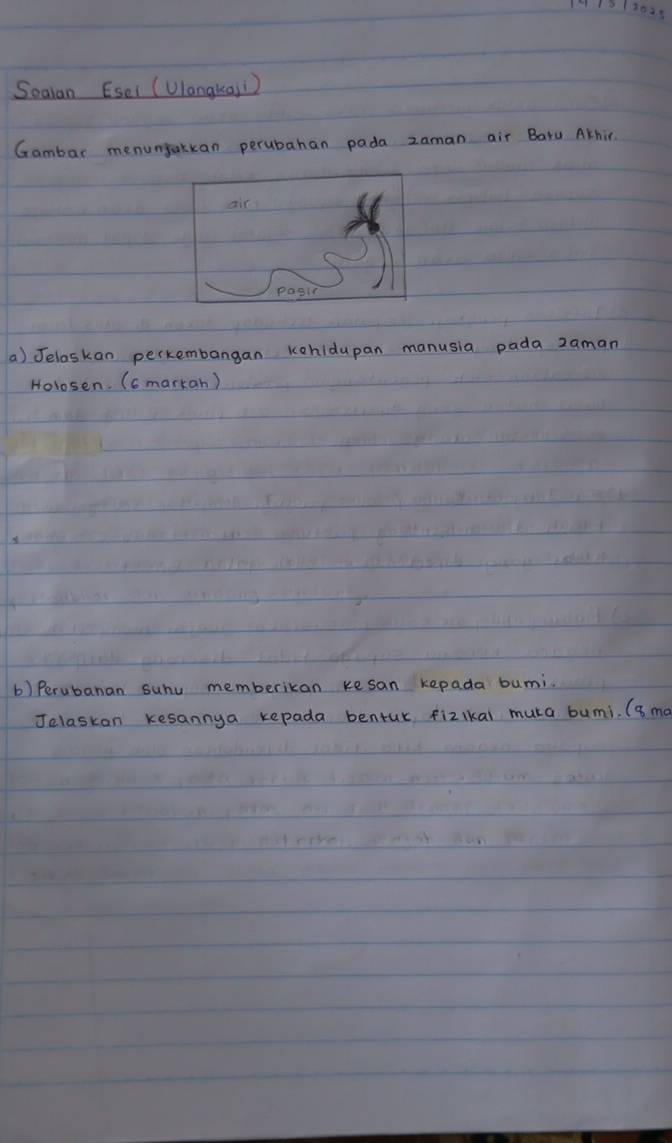 14/5/2025
Soalan Esei (Ulangkaji)
Gambar menunjukkan perubahan pada zaman air Batu Akhir.
air
pasir
a) Jelaskan perkembangan kehidupan manusia pada zaman
Holosen. (6 markah)
b) Perubahan suhu memberikan kesan kepada bumi.
Jelaskan kesannya kepada bentuk fizikal muka bumi. (8 ma